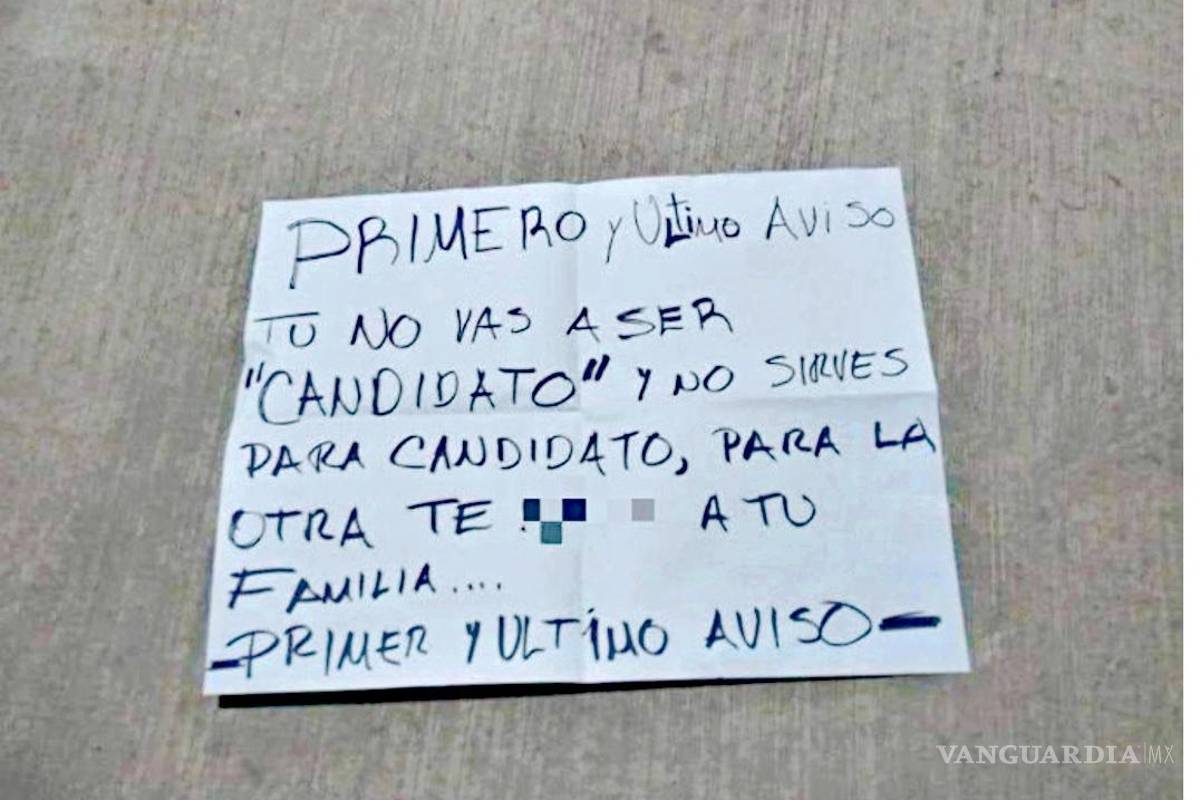 PRIMERO y ULtimo AViSO
TU NO VAS A SER
"CANDIDATO" Y NO SIRVES
PARA CANDIDATO, PARA LA
OTRA TE A TU
FAMILIA....
-PRIMER Y ULTiMO AVISO-
VANGUARDIA|MX